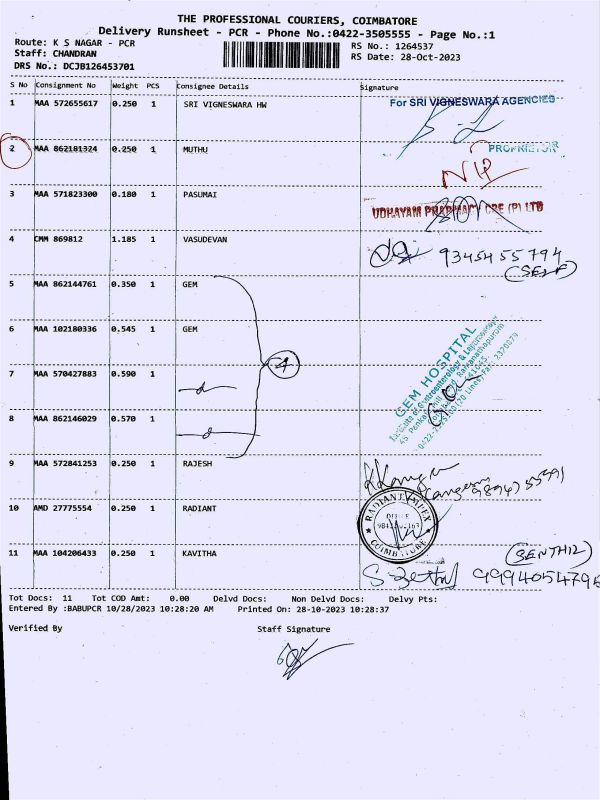 THE PROFESSIONAL COURIERS, COIMBATORE
Delivery Runsheet - PCR - Phone No.:0422-3505555 - Page No.:1
Route: K S NAGAR - PCR
RS No.: 1264537
Staff: CHANDRAN
RS Date: 28-Oct-2023
DRS No.: DCJB126453701
S No Consignment No Weight PCS Consignee Details Signature
1 MAA 572655617 0.250 1 SRI VIGNESWARA HW For SRI VIGNESWARA AGENCIES
2 MAA 862181324 0.250 1 MUTHU PROPRIETOR
3 MAA 571823300 0.180 1 PASUMAI
UDHAYAM PHARMACY CBE (P) LTD
4 CMM 869812 1.185 1 VASUDEVAN
9345455794
(SELF)
5 MAA 862144761 0.350 1 GEM
6 MAA 102180336 0.545 1 GEM
4
GEM HOSPITAL
7 MAA 570427883 0.590 1
8 MAA 862146029 0.570 1
9 MAA 572841253 0.250 1 RAJESH
10 AMD 27775554 0.250 1 RADIANT
RADIANT IMPEX
COIMBATORE
11 MAA 104206433 0.250 1 KAVITHA
(SENTHIL)
Tot Docs: 11 Tot COD Amt: 0.00 Delvd Docs: Non Delvd Docs: Delvy Pts:
Entered By :BABUPCR 10/28/2023 10:28:20 AM Printed On: 28-10-2023 10:28:37
Verified By Staff Signature